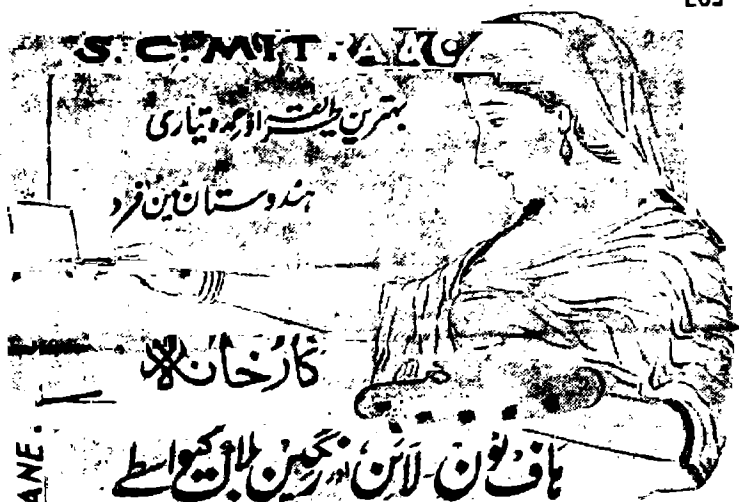 S. C. MITRA & C
بہترین طریقہ اور عمدہ تیاری
ہندوستان میں فرد
کارخانہ
ہاف ٹون۔ لائن، اور رنگین بلاک کیواسطے
ANE.